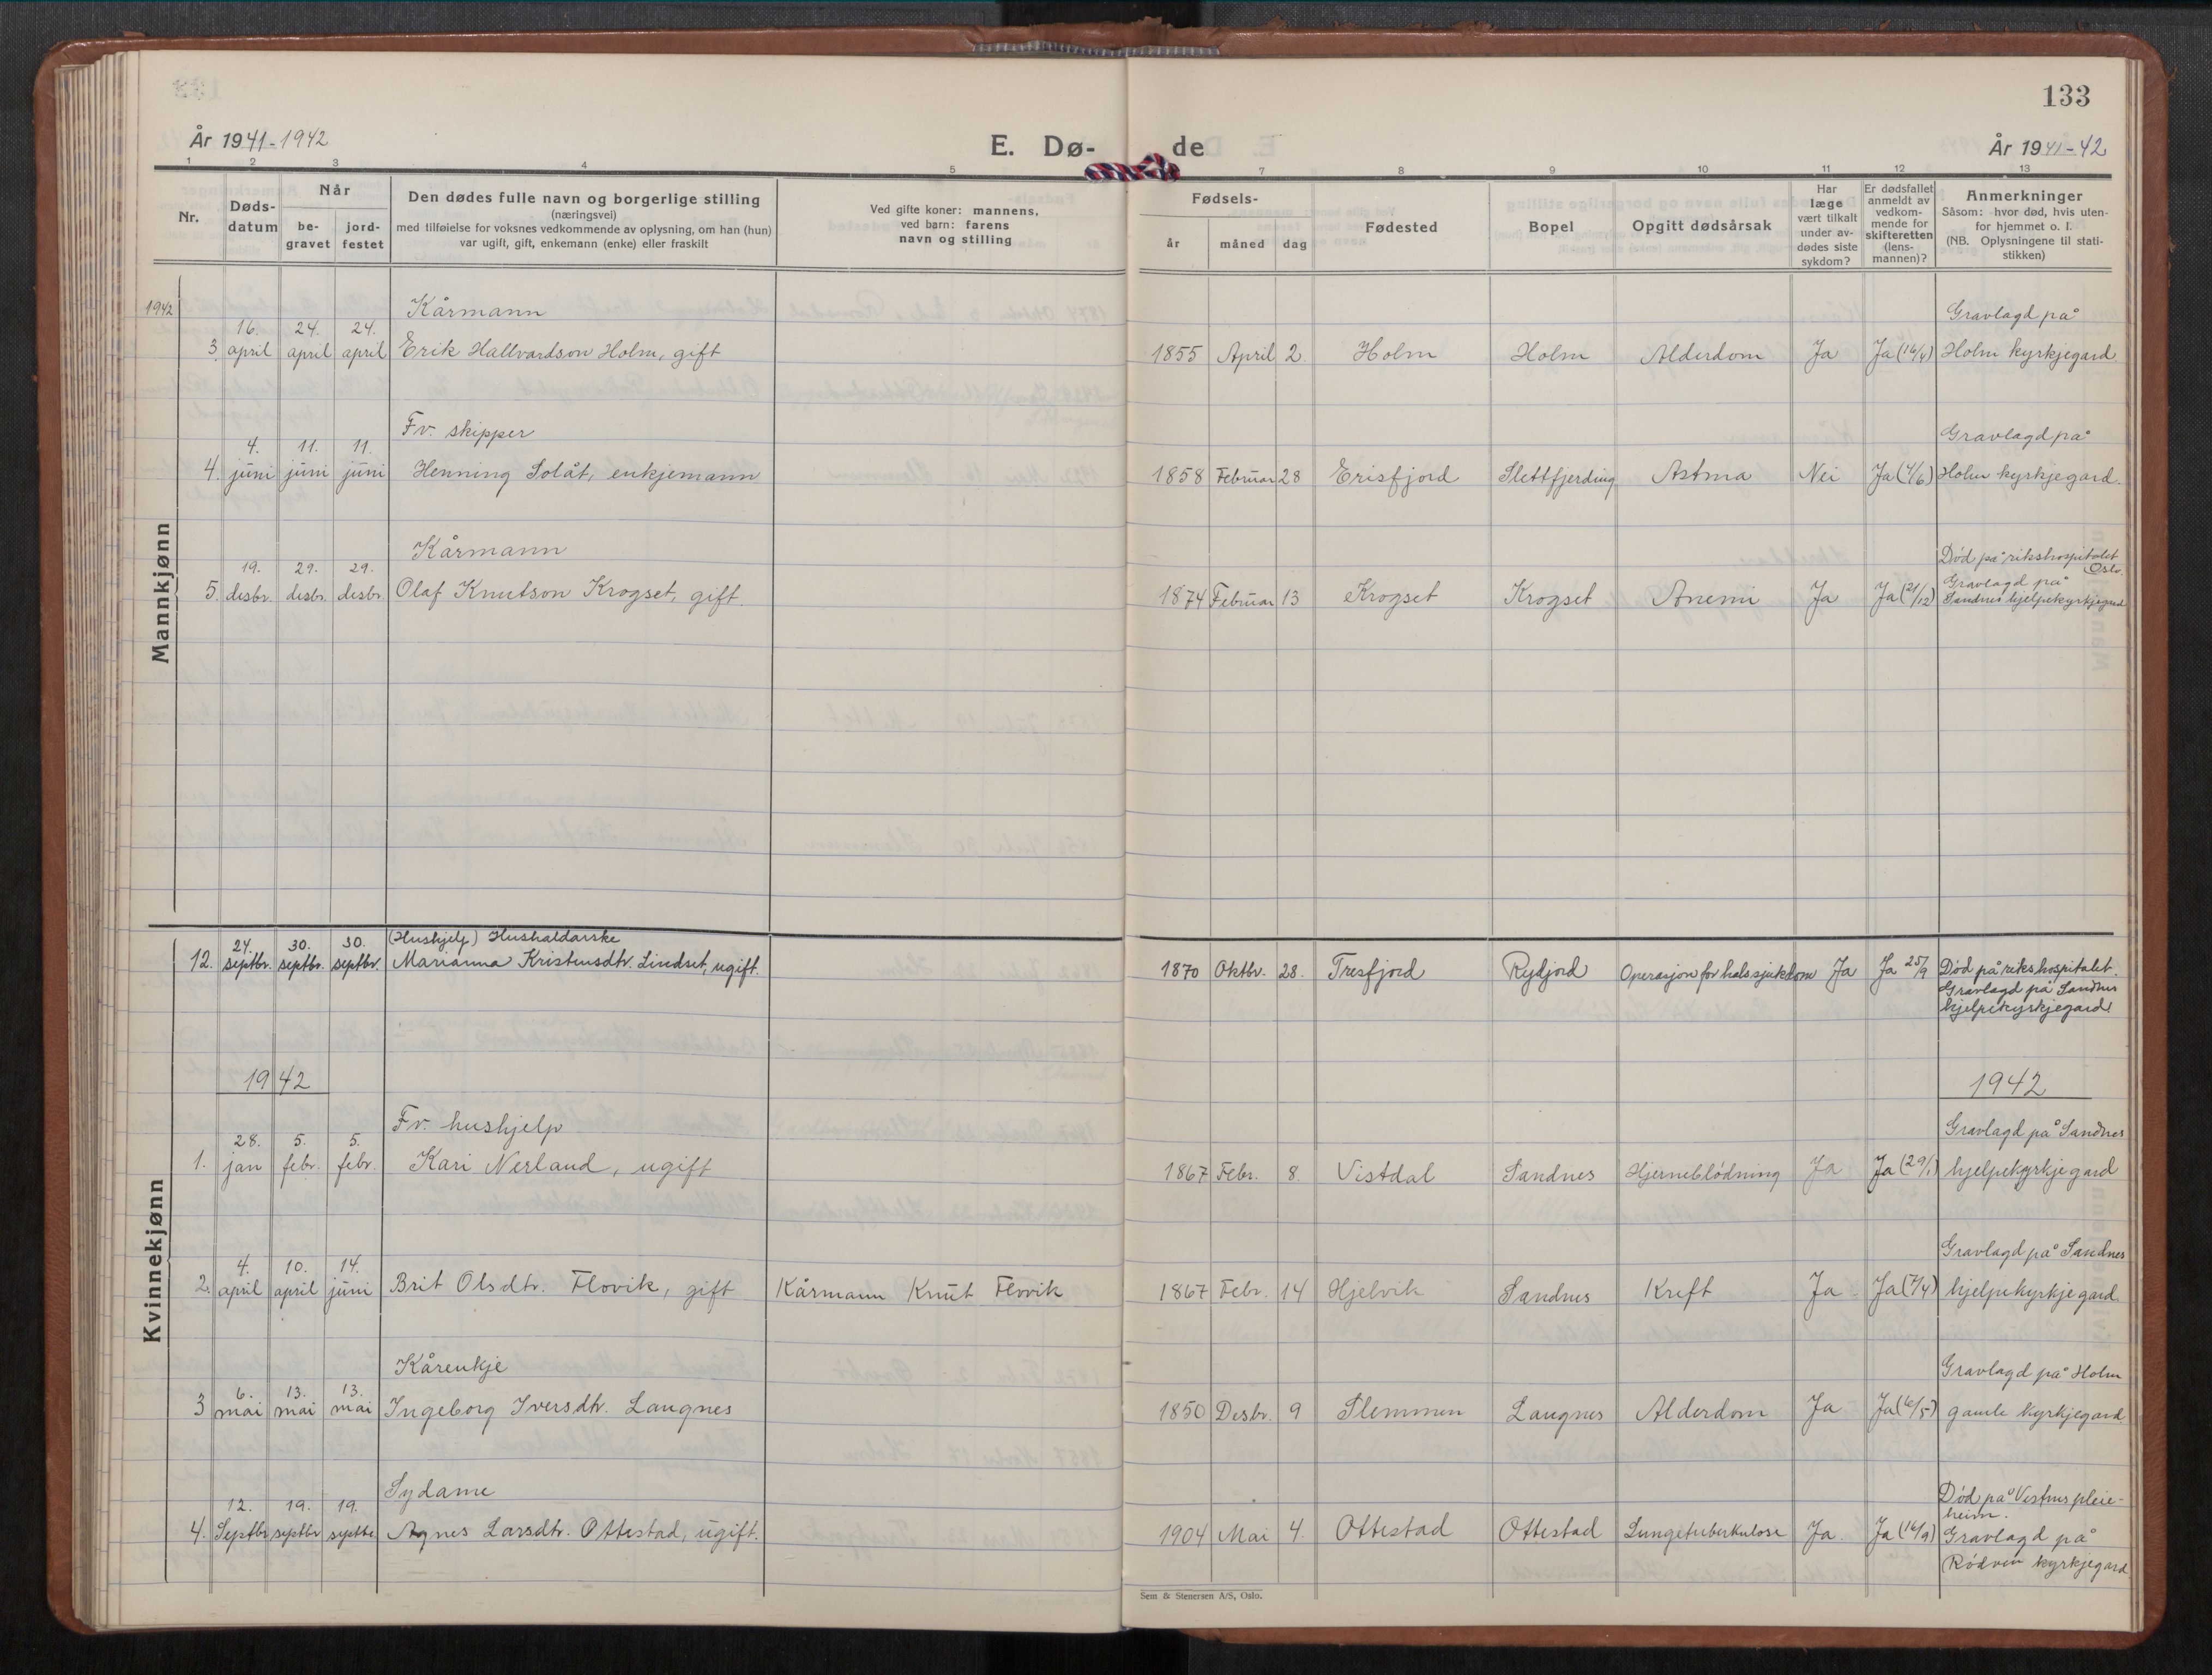 133
År 1941-1942
E. Dø-
de
År 1941-42
1 2 3 4 5 7 8 9 10 11 12 13
Nr.
Døds-
datum
Når
be-
gravet
jord-
festet
Den dødes fulle navn og borgerlige stilling
(næringsvei)
med tilføielse for voksnes vedkommende av oplysning, om han (hun)
var ugift, gift, enkemann (enke) eller fraskilt
Ved gifte koner: mannens,
ved barn: farens
navn og stilling
Fødsels-
år måned dag
Fødested
Bopel
Opgitt dødsårsak
Har
læge
vært tilkalt
under av-
dødes siste
sykdom?
Er dødsfallet
anmeldt av
vedkom-
mende for
skifteretten
(lens-
mannen)?
Anmerkninger
Såsom: hvor død, hvis uten-
for hjemmet o. l.
(NB. Oplysningene til stati-
stikken)
Mannkjønn
1942 Kårmann Gravlagd på
16. 24. 24.
3. april april april Erik Hallvardson Holm, gift 1855 April 2. Holm Holm Alderdom Ja Ja (16/4) Holm kyrkjegard
Fv. skipper Gravlagd på
4. 11. 11.
4. juni juni juni Henning Solåt, enkjemann 1858 Februar 28 Erisfjord Slettfjerding Astma Nei Ja (4/6) Holm kyrkjegard.
Kårmann Død på rikshospitalet
Oslo.
19. 29. 29. Gravlagd på
5. desbr. desbr. desbr. Olaf Knutson Krogset, gift. 1874 Februar 13 Krogset Krogset Anemi Ja Ja (21/12) Sandnes hjelpekyrkjegard
Kvinnekjønn
24. 30. 30. (Hushjelp) Hushaldarske
12. septbr. septbr. septbr. Marianna Kristensdtr. Lindset, ugift. 1870 Oktbr. 28. Tresfjord Rydjord Operasjon for halssjukdom Ja Ja 25/9 Død på rikshospitalet.
Gravlagd på Sandnes
hjelpekyrkjegard
1942 1942
Fv. hushjelp Gravlagd på Sandnes
28. 5. 5.
1. jan febr. febr. Kari Nerland, ugift 1867 Febr. 8. Vistdal Sandnes Hjerneblödning Ja Ja (29/1) hjelpekyrkjegard
4. 10. 14. Gravlagd på Sandnes
2. april april juni Brit Olsdtr. Flovik, gift Kårmann Knut Flovik 1867 Febr. 14 Hjelvik Sandnes Kreft Ja Ja (7/4) hjelpekyrkjegard.
Kårenkje Gravlagd på Holm
6. 13. 13.
3 mai mai mai Ingeborg Iversdtr. Langnes 1850 Desbr. 9 Slemmen Langnes Alderdom Ja Ja (6/5) gamle kyrkjegard
Sydame Død på Vestnes pleie-
heim.
12. 19. 19.
4. Septbr septbr septbr. Agnes Larsdtr. Ottestad, ugift. 1904 Mai 4. Ottestad Ottestad Lungetuberkulose Ja. Ja (16/9) Gravlagd på
Rödven kyrkjegard
Sem & Stenersen A/S, Oslo.